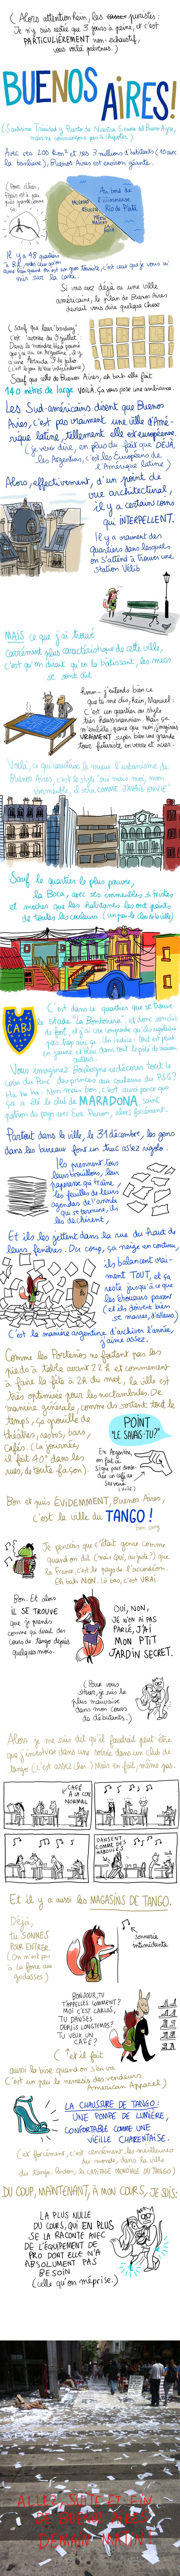 (Alors attention hein, les puristes :
je n'y suis restée que 3 jours à peine, et c'est
PARTICULIÈREMENT non-exhaustif,
vous voilà prévenus.)
BUENOS AIRES!
mais ne commençons pas à chipoter)
Avec ses 200 km² et ses 3 millions d'habitants (10 avec
la banlieue), Buenos Aires est environ géante.
Au bord de
l'immense
Rio de Plata
Il y a 48 quartiers
mis sur la carte.
Si vous avez déjà vu une ville
américaine, le plan de Buenos Aires
devrait vous dire quelque chose
(Sauf que leur "boulevard"
Sauf que celle de Buenos Aires, eh bah elle fait
140 mètres de large. Voilà. Ça vous pose une ambiance.
Les Sud-américains disent que Buenos
Aires, c'est pas vraiment une ville d'Amé-
rique latine, tellement elle est européenne.
(je veux dire, en plus du fait que DÉJÀ,
les Argentins, c'est les Européens de
l'Amérique latine)
Alors, effectivement, d'un point de
vue architectural,
il y a certains coins
qui INTERPELLENT.
Il y a vraiment des
quartiers dans lesquels
on s'attend à trouver une
station Vélib
MAIS ce que j'ai trouvé
carrément plus caractéristique de cette ville,
c'est qu'on dirait qu'en la bâtissant, les mecs
se sont dit
Voilà, ce qui caractérise le mieux l'urbanisme de
Buenos Aires, c'est le style "oui mais moi, mon
immeuble, il sera COMME J'AVAIS ENVIE".
Sauf le quartier le plus pauvre,
la Boca, avec ses immeubles si tristes
et moches que les habitants les ont peints
de toutes les couleurs (un peu le clou de la ville)
CABJ
C'est dans ce quartier que se trouve
le stade "La Bombonera", et donc son club
de foot, et j'ai cru comprendre qu'ils rigolaient
pas trop avec ça. Un indice : tout est peint
en jaune et bleu dans tout le pâté de maison
autour.
Vous imaginez Boulogne redécorer tout le
coin du Parc des princes aux couleurs du PSG?
He he he. Non mais bon, c'est aussi parce que
ça a été le club de MARADONA, saint
patron du pays avec Eva Peron, alors forcément.
Partout dans la ville, le 31 décembre, les gens
dans les bureaux font un truc assez rigolo.
Ils prennent tous
leurs brouillons, leur
paperasse qui traîne,
les feuilles de leurs
agendas de l'année
qui se termine, ils
les déchirent,
Et ils les jettent dans la rue du haut de
leurs fenêtres. Du coup, ça neige en continu,
ils balancent vrai-
ment TOUT, et ça
reste jusqu'à ce que
les éboueurs passent
(et ils doivent bien
se marrer, d'ailleurs)
C'est la manière argentine d'archiver l'année,
j'aime assez.
Comme les Porteños ne foutent pas les
pieds à table avant 22 h et commencent
à faire la fête à 2h du mat, la ville est
très optimisée pour les noctambules. De
manière générale, comme ils sortent tout le
temps, ça grouille de
théâtres, restos, bars,
cafés (la journée,
il fait 40° dans les
rues, de toute façon)
POINT
"LE SAVAIS-TU?"
En Argentine,
on fait ce
signe pour deman-
der un café au
serveur
Bon et puis ÉVIDEMMENT, Buenos Aires,
c'est la ville du TANGO!
bon sang
Je pensais que c'était genre comme
quand on dit (mais qui, au juste?) que
la France, c'est le pays de l'accordéon.
Eh bah NON. Là bas, c'est VRAI.
Bon. Et alors
IL SE TROUVE
que je prends
comme qui dirait des
cours de tango depuis
quelques mois.
OUI, NON,
JE N'EN AI PAS
PARLÉ, J'AI
MON P'TIT
JARDIN SECRET
(Pour vous
situer, je suis la
plus mauvaise
dans mon cours
de débutants.)
Alors je me suis dit qu'il faudrait peut-être
que j'improvise dans une soirée dans un club de
tango (c'est assez cher) Mais en fait, même pas.
CAFÉ
À LA CON
NORMAL
DANSENT
COMME DES
MABOULS
Et il y a aussi les MAGASINS DE TANGO.
Déjà,
tu SONNES
POUR ENTRER.
(On n'est pas
à La foire aux
godasses)
sonnerie
intimidante
BONJOUR, TU
T'APPELLES COMMENT?
MOI C'EST CARLOS,
TU DANSES
DEPUIS LONGTEMPS?
TU VEUX UN
CAFÉ?
(↑ et il fait
aussi la bise quand on s'en va
C'est un peu la némésis des vendeurs
American Apparel)
LA CHAUSSURE DE TANGO :
UNE POMPE DE LUMIÈRE,
CONFORTABLE COMME UNE
VIEILLE CHARENTAISE.
(et forcément, c'est carrément les meilleures
du monde, dans la ville
du tango. Pardon, la CAPITALE MONDIALE DU TANGO)
DU COUP, MAINTENANT, À MON COURS, JE SUIS:
LA PLUS NULLE
DU COURS, QUI EN PLUS
SE LA RACONTE AVEC
DE L'ÉQUIPEMENT DE
PRO DONT ELLE N'A
ABSOLUMENT PAS
BESOIN
(celle qu'on méprise.)
ALLEZ, SUITE ET FIN
DE BUENOS AIRES
DEMAIN MATIN!